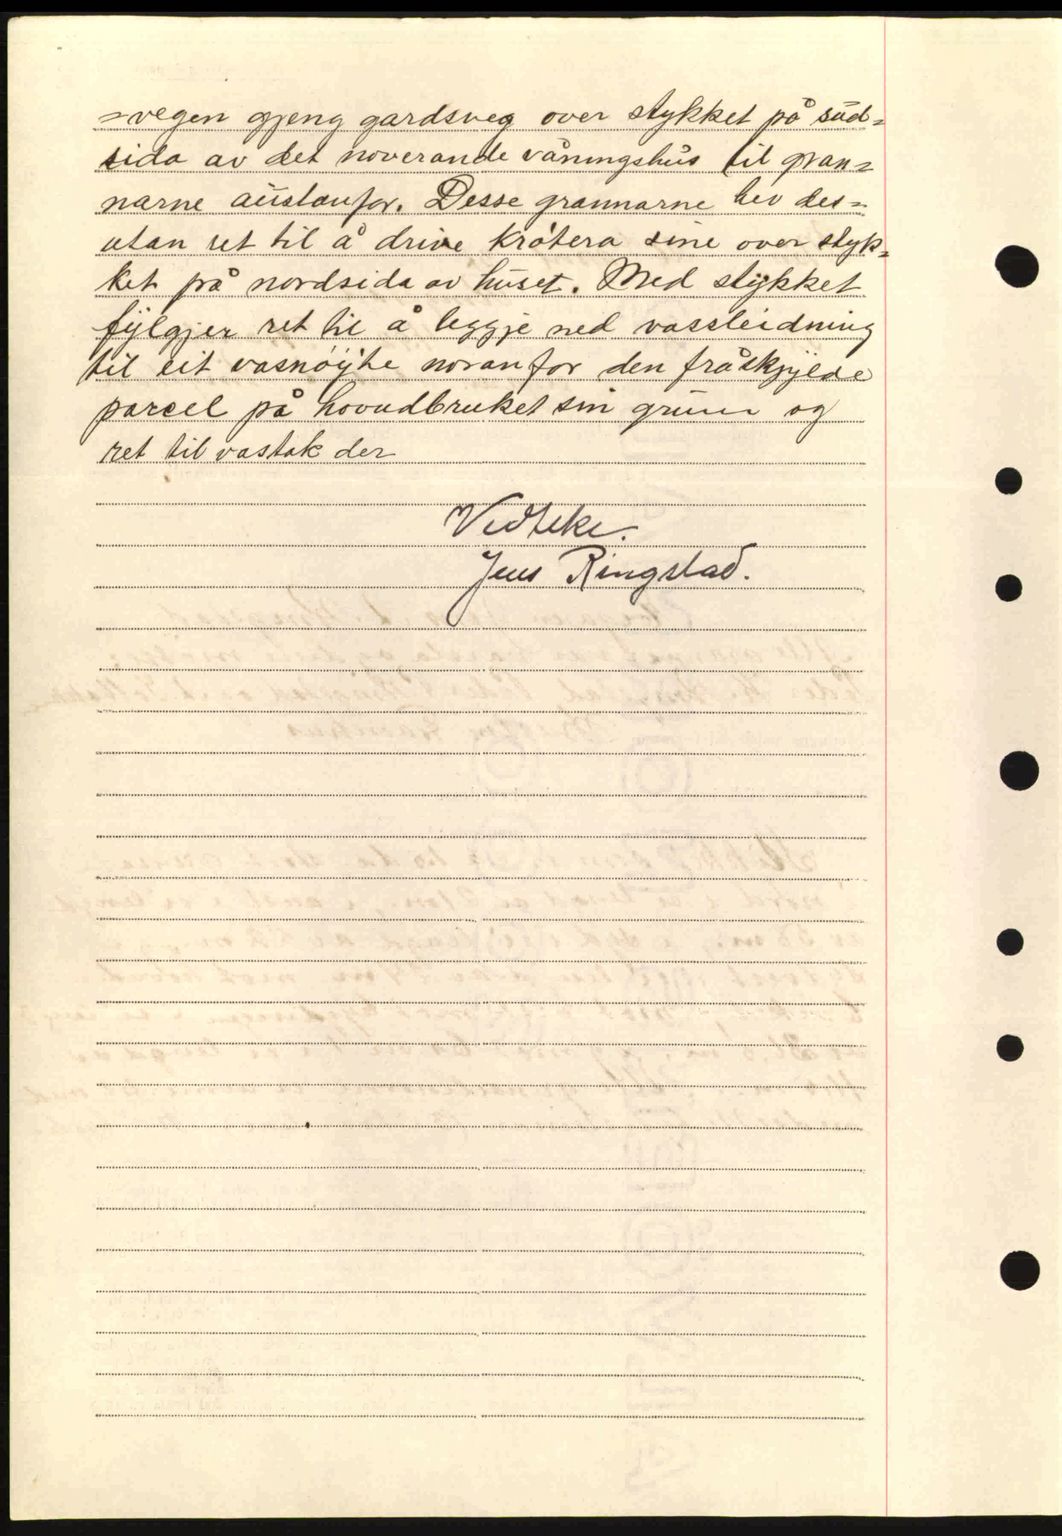 =vegen gjeng gardsveg over stykket på süd=
sida av det noverande våningshüs til gran=
narne aüstanfor. Desse grannarne hev des=
utan ret til å drive krøtera sine over styk=
ket på nordsida av hüset. Med stykket
fylgjer ret til å leggje ned vassleidning
til eit vasnøyte noranfor den fråskyldé
parcel på hovudbruket sin grünn og
ret til vastak der
Vedteke.
Jens Ringstad.